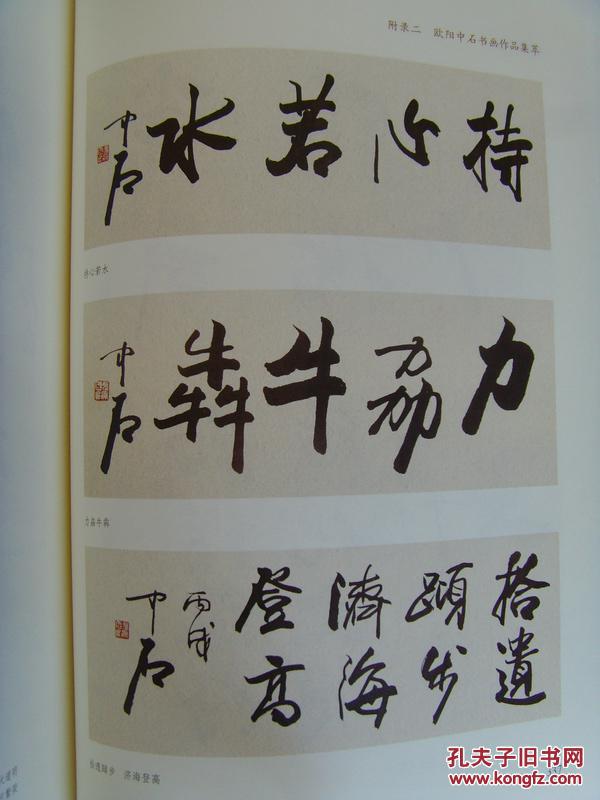 附录二 欧阳中石书画作品集萃
持心若水
中石
持心若水
力劦牛犇
中石
力劦牛犇
拾遺
蹞步
濟海
登高
丙戌
中石
拾遗蹞步 济海登高
孔夫子旧书网
www.kongfz.com